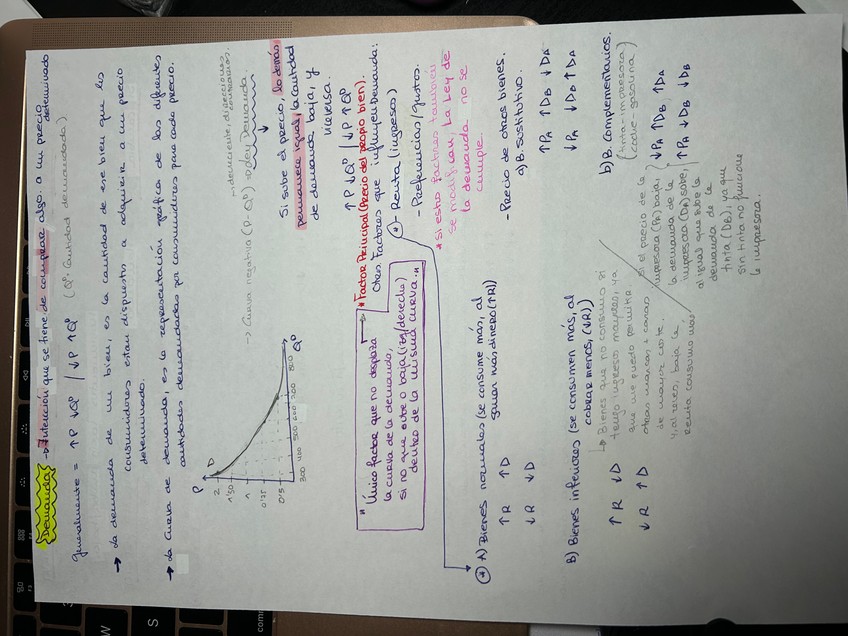 Demanda → Intención que se tiene de comprar algo. a un precio determinado
generalmente = ↑P ↓Qº / ↓P ↑Qº (Qº: Cantidad demandada)
→ La demanda de un bien, es la cantidad de ese bien que los
consumidores estan dispuestos a adquirir a un precio
determinado.
→ La Curva de demanda, es la representación gráfica de las diferentes
cantidades demandadas por consumidores para cada precio.
P
D
2
1'50
1
0'75
0'5
300 400 500 600 700 800
Qº
→ decreciente, direcciones
contrarias.
→ Curva negativa (P-Qº) → Ley Demanda.
Si sube el precio, lo demás
permanece igual, la cantidad
de demanda baja, y
viceversa.
↑P ↓Qº / ↓P ↑Qº
* Factor Principal (Precio del propio bien).
" Único factor que no desplaza
la curva de la demanda,
si no que sube o baja (izq/derecha)
dentro de la misma curva. "
Otros Factores que influyen Demanda:
* - Renta (ingresos)
- Preferencias / gustos.
* Si estos Factores tambien
se modifican, la Ley de
la demanda no se
cumple.
- Precio de otros bienes.
a) B. Sustitutivo.
↑PA ↑DB ↓DA
↓PA ↓DB ↑DA
b) B. Complementarios.
(tinta-impresora)
(coche-gasolina)
↓PA ↑DB ↑DA
↑PA ↓DB ↓DB
Si el precio de la
impresora (PA) baja,
la demanda de la
impresora (DA) sube,
al igual que sube la
demanda de la
tinta (DB), ya que
sin tinta no funciona
la impresora.
* A) Bienes normales (se consume más, al
ganar más dinero (↑R))
↑R ↑D
↓R ↓D
B) Bienes inferiores (se consumen más, al
cobrar menos, (↓R))
↑R ↓D
↓R ↑D
↳ Bienes que no consumo si
tengo ingresos mayores, ya
que me puedo permitir
otras marcas, o cosas
de mayor coste.
Y al reves, baja la
renta consumo más